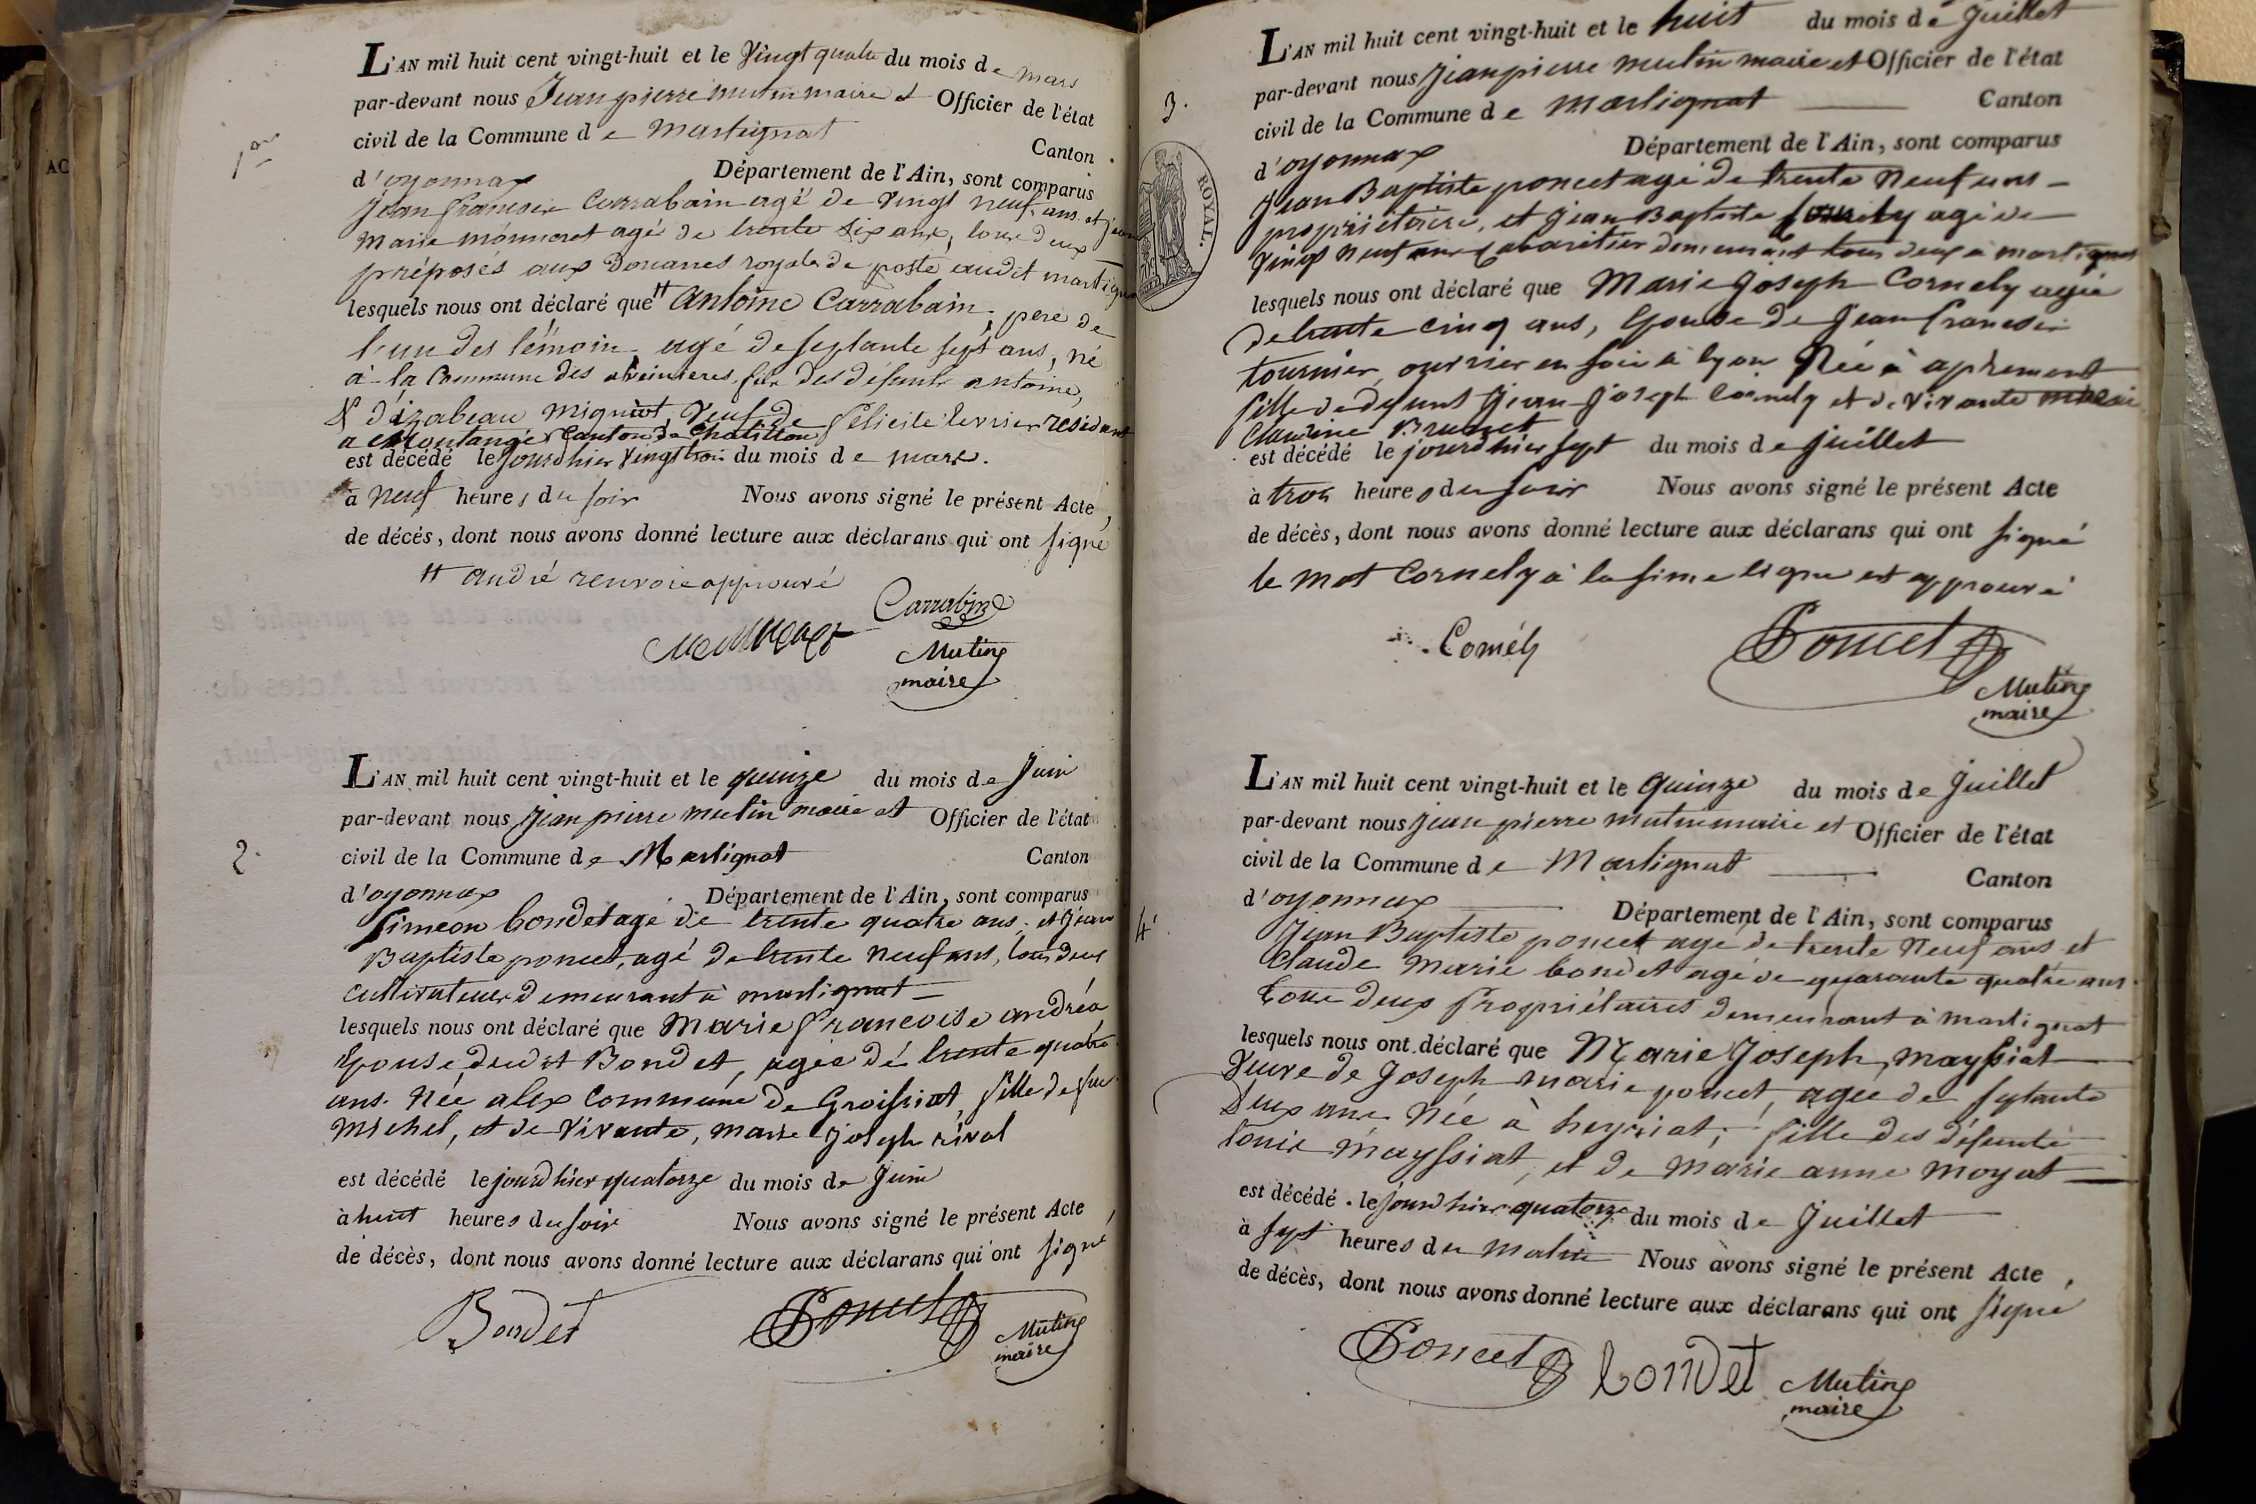 1er
L'AN mil huit cent vingt-huit et le Vingt quatre du mois de mars
par-devant nous Jean pierre mutin maire et Officier de l'état
civil de la Commune de Martignat
Canton
d'oyonnax Département de l'Ain, sont comparus
Jean francois Carrabain agé de vingt neuf ans et jean
Marie monneret agé de trente six ans, tous deux
préposés aux Douanes royale de poste audit martignat
lesquels nous ont déclaré que # Antoine Carrabain, pere de
l'un des témoin, agé de septante sept ans, né
à la Commune des fils des défunts antoine,
& d'izabeau mignot, Veuf de félicité résidant
a Canton de Chatillon
est décédé le jourd'hier vingt trois du mois de mars.
à neuf heures du soir Nous avons signé le présent Acte,
de décés, dont nous avons donné lecture aux déclarans qui ont signé
# andré renvoie approuvé
Carrabin
Monneret
Mutin
maire
2.
L'AN mil huit cent vingt-huit et le quinze du mois de Juin
par-devant nous Jean pierre mutin maire et Officier de l'état
civil de la Commune de Martignat Canton
d'oyonnax Département de l'Ain, sont comparus
Simeon bondet agé de trente quatre ans, et Jean
Baptiste poncet, agé de trente neuf ans, tous deux
cultivateurs demeurant à martignat
lesquels nous ont déclaré que Marie francoise andréa
Epouse dudit Bondet, agée de trente quatre
ans. Née alex Commune de Groissiat, fille de feu
Michel, et de vivante, marie Joseph rival
est décédé le jourd'hier quatorze du mois de Juin
à huit heures du soir Nous avons signé le présent Acte,
de décés, dont nous avons donné lecture aux déclarans qui ont signé
Bondet Poncet Mutin
maire
3.
ROYAL.
L'AN mil huit cent vingt-huit et le huit du mois de Juillet
par-devant nous Jean pierre mutin maire et Officier de l'état
civil de la Commune de Martignat Canton
d'oyonnax Département de l'Ain, sont comparus
Jean Baptiste poncet agé de trente neuf ans
propriétaire, et Jean Baptiste agé de
Vingt neuf ans Cabaretier demeurant tous deux à martignat
lesquels nous ont déclaré que Marie Joseph Cornely agée
de trente cinq ans, Epouse de Jean francois
tournier, ouvrier en soie à lyon Née à apremont
fille de defunt Jean Joseph Cornely et de vivante
Claudine Brunet
est décédé le jourd'hier sept du mois de Juillet
à trois heures du soir Nous avons signé le présent Acte
de décès, dont nous avons donné lecture aux déclarans qui ont signé
le mot Cornely à la ligne est approuvé
Cornély Poncet
Mutin
maire
4
L'AN mil huit cent vingt-huit et le Quinze du mois de Juillet
par-devant nous Jean pierre mutin maire et Officier de l'état
civil de la Commune de Martignat Canton
d'oyonnax Département de l'Ain, sont comparus
Jean Baptiste poncet agé de trente Neuf ans et
Claude Marie bondet agé de quarante quatre ans
tous deux Propriétaires demeurant à Martignat
lesquels nous ont déclaré que Marie Joseph mayssiat
Veuve de Joseph marie poncet, agée de septante
Deux ans Née à heyriat, fille des défunts
Louis mayssiat, et de Marie anne Moyat
est décédé le jourd'hier quatorze du mois de Juillet
à sept heures du matin Nous avons signé le présent Acte,
de décès, dont nous avons donné lecture aux déclarans qui ont signé
Poncet bondet Mutin
maire